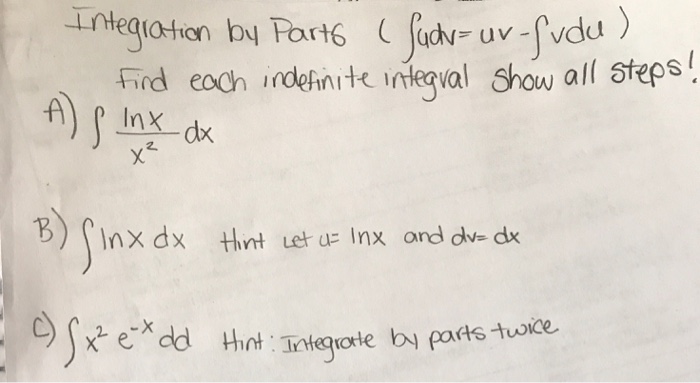 Integration by Parts ( ∫udv = uv - ∫vdu )
Find each indefinite integral Show all steps!
A) ∫ lnx/x² dx
B) ∫ lnx dx Hint Let u= lnx and dv= dx
C) ∫ x² e^-x dd Hint: Integrate by parts twice